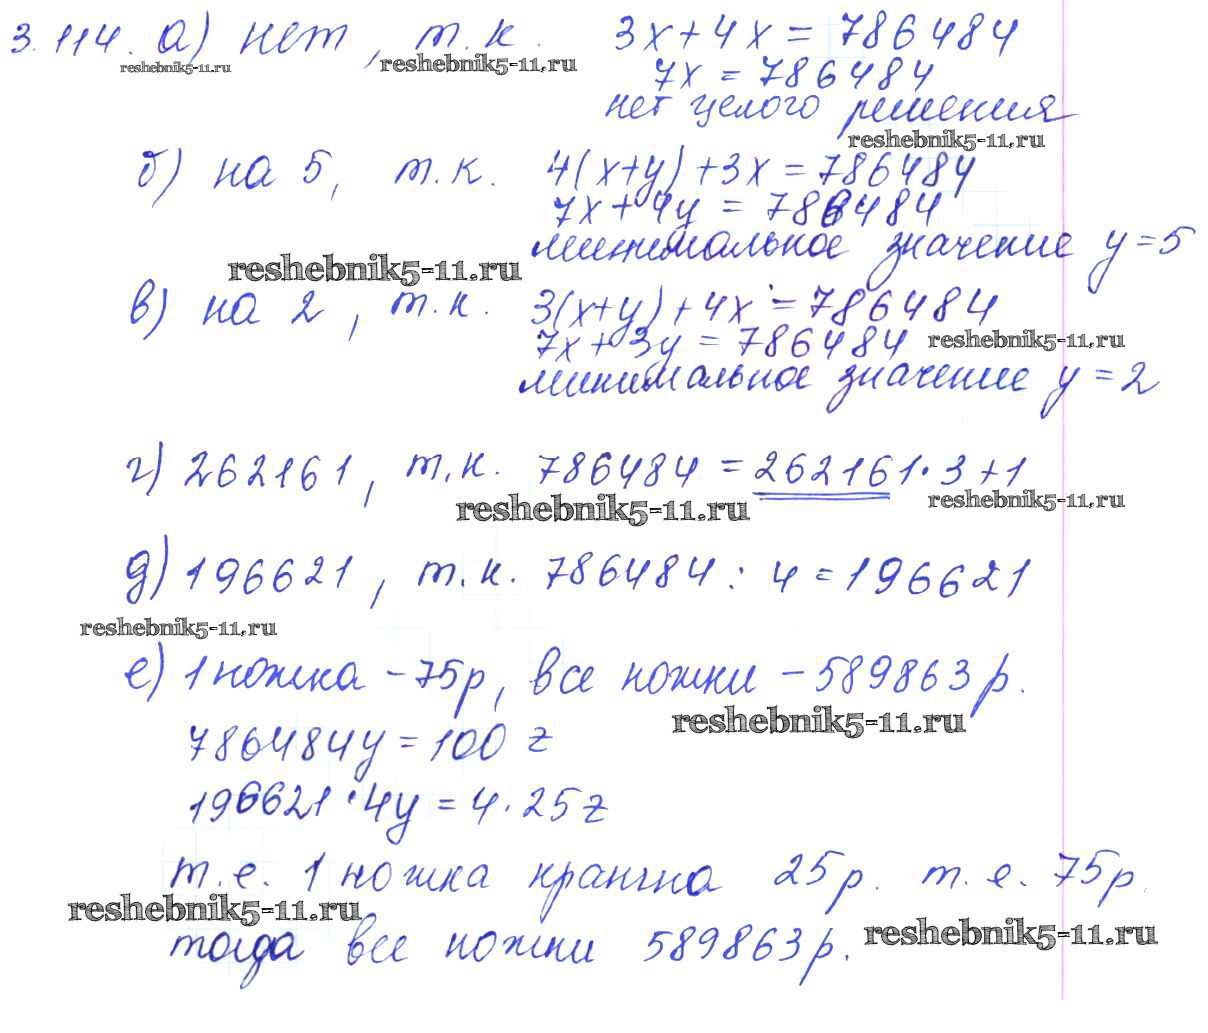 3.114. а) нет, т.к. 3x+4x=786484
reshebnik5-11.ru reshebnik5-11.ru
7x=786484
нет целого решения
reshebnik5-11.ru
б) на 5, т.к. 4(x+y)+3x=786484
7x+4y=786484
минимальное значение y=5
reshebnik5-11.ru
в) на 2, т.к. 3(x+y)+4x=786484
7x+3y=786484 reshebnik5-11.ru
минимальное значение y=2
г) 262161, т.к. 786484=262161·3+1
reshebnik5-11.ru reshebnik5-11.ru
д) 196621, т.к. 786484:4=196621
reshebnik5-11.ru
е) 1 ножка -75р, все ножки -589863р.
reshebnik5-11.ru
786484y=100z
196621·4y=4·25z
т.е. 1 ножка кратна 25р. т.е. 75р
reshebnik5-11.ru
тогда все ножки 589863р.
reshebnik5-11.ru